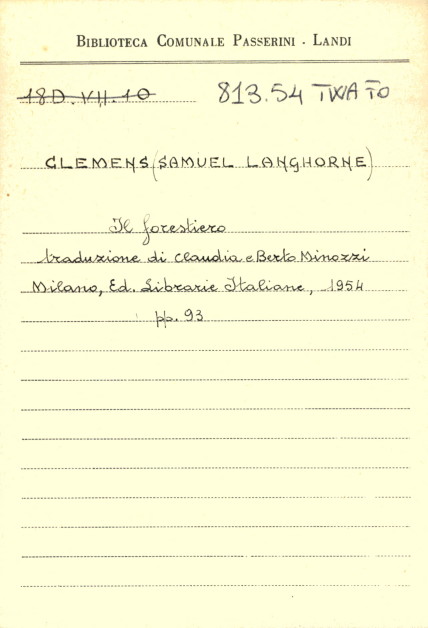 BIBLIOTECA COMUNALE PASSERINI - LANDI
18D.VII.10 813.54 TWA TO
CLEMENS (SAMUEL LANGHORNE)
Il forestiero
traduzione di Claudia e Berto Minozzi
Milano, Ed. Librarie Italiane, 1954
pp. 93